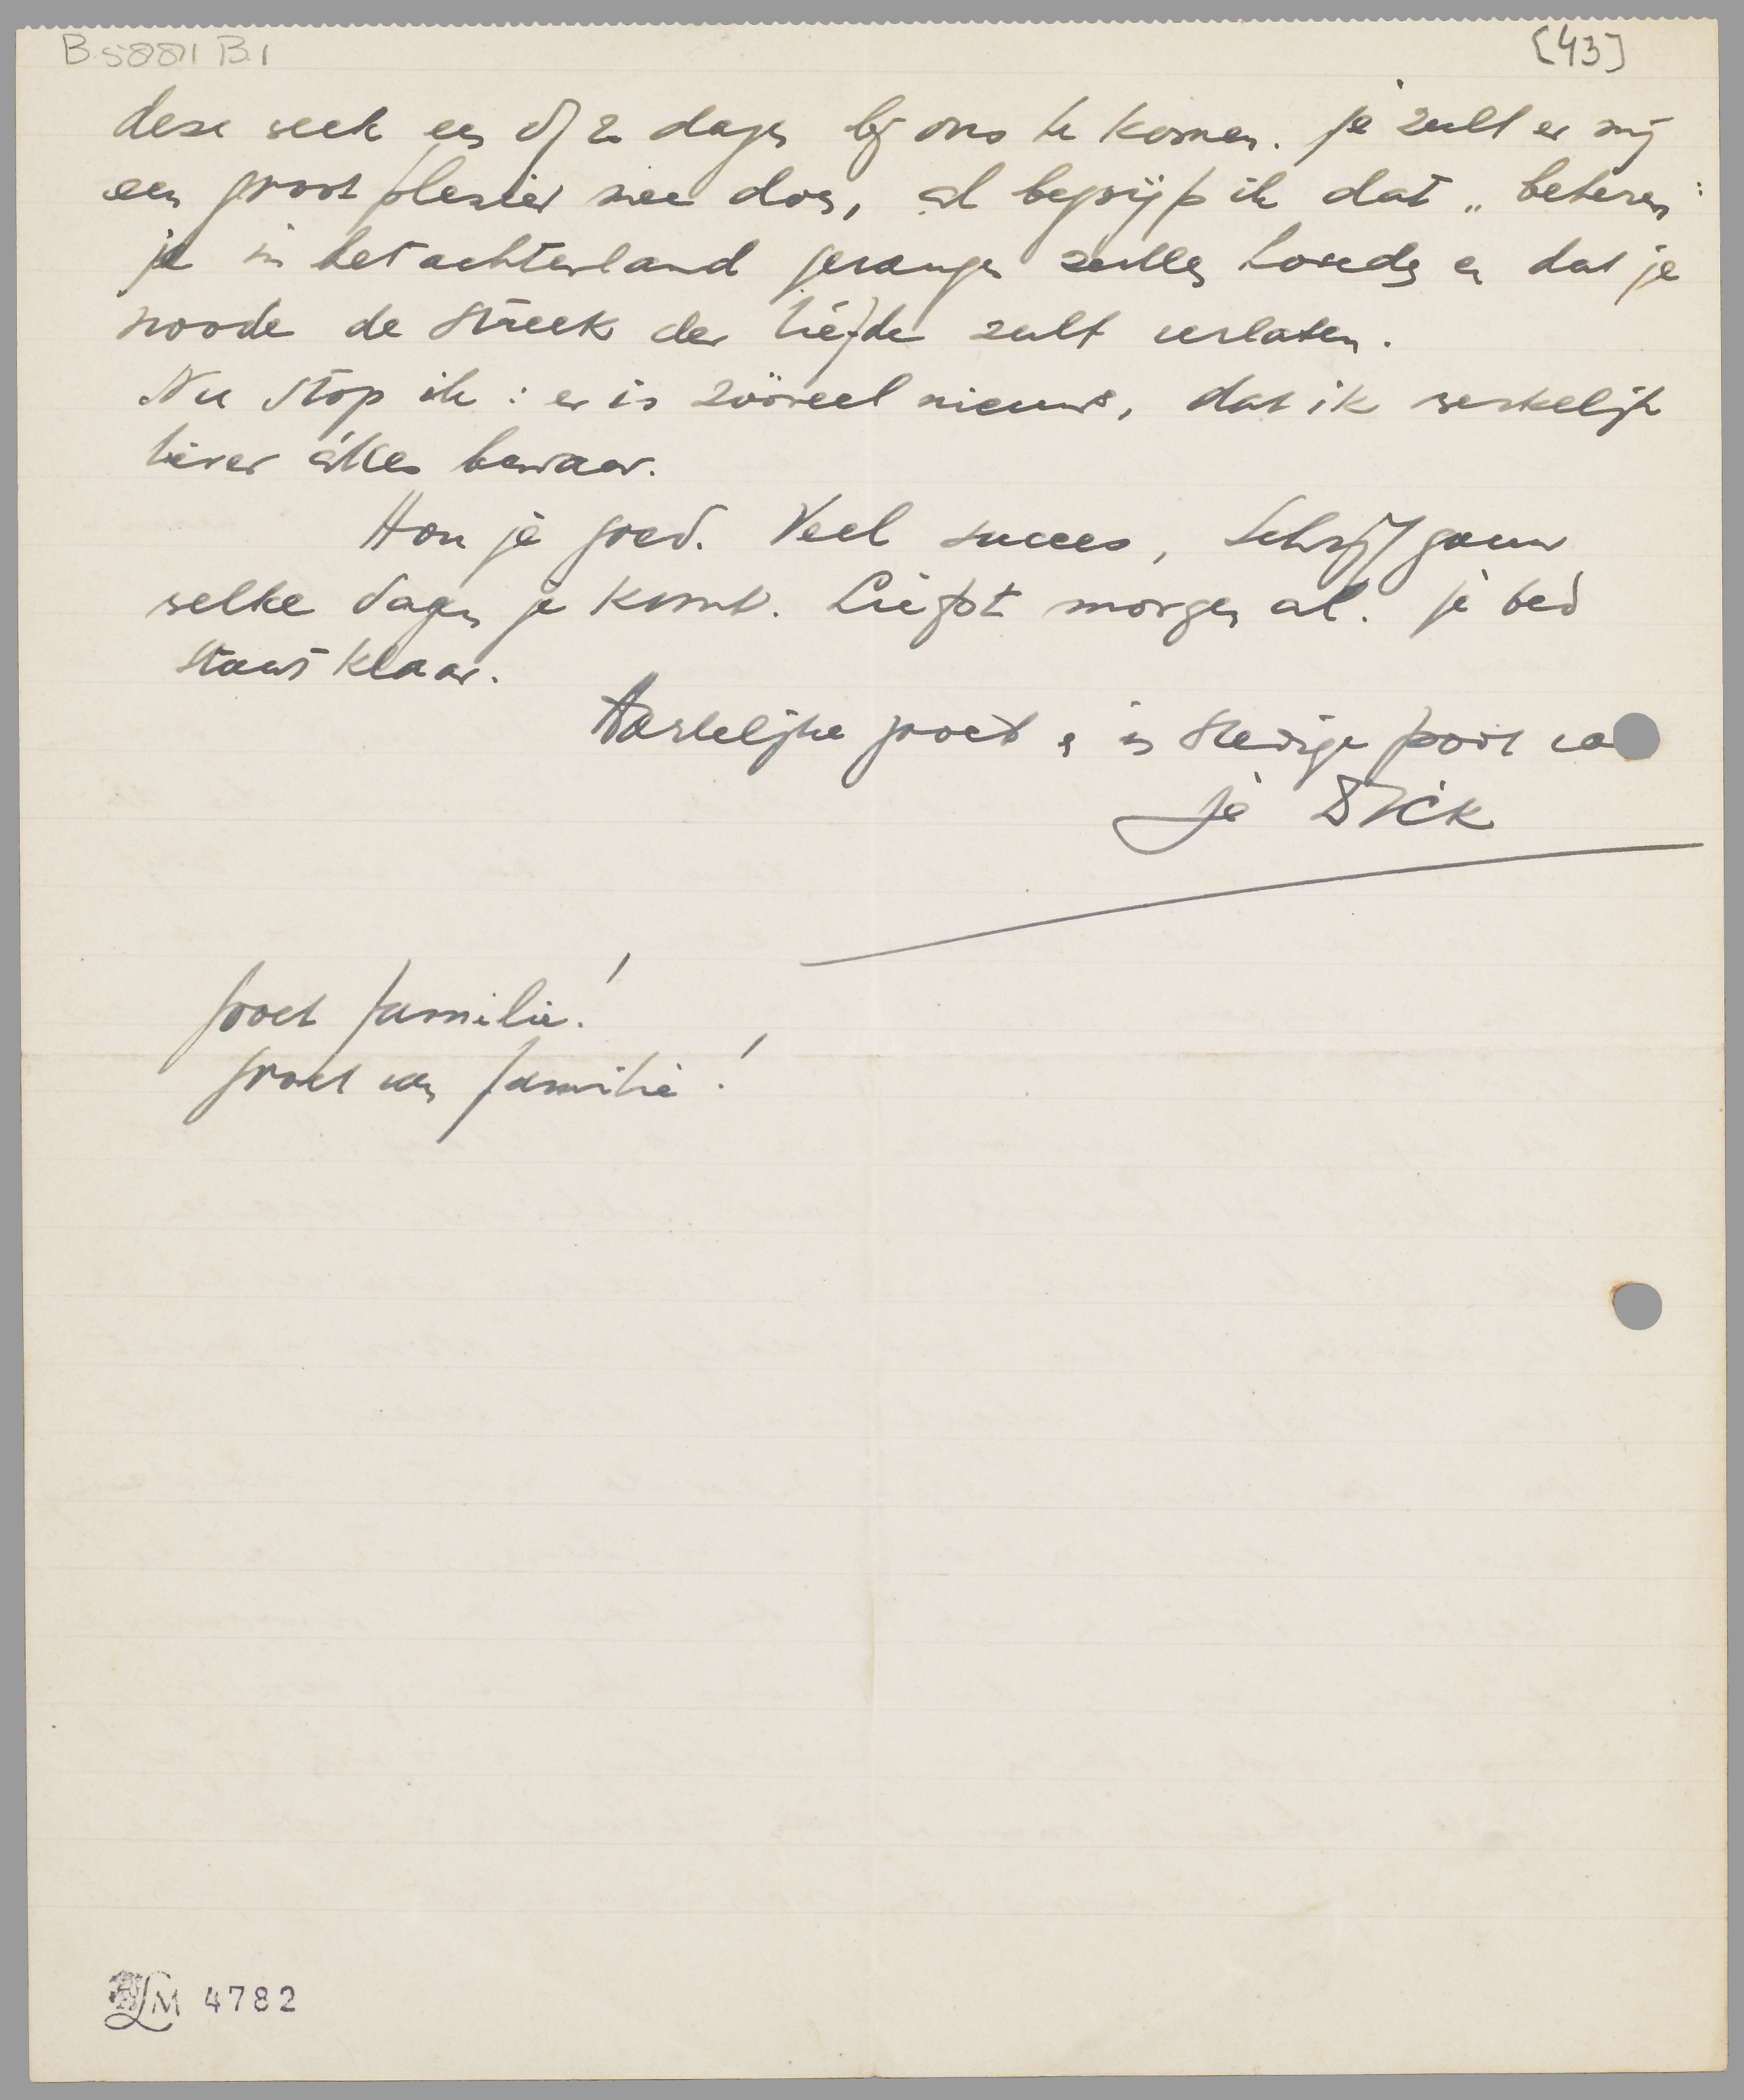 B.5881 B.1
[43]
deze week een of 2 dagen bij ons te komen. Je zult er mij
een groot plezier mee doen, al begrijp ik dat „beteren"
je in het achterland gevangen zullen houden en dat je
noode de streek der liefde zult verlaten.
Nu stop ik: er is zóóveel nieuws, dat ik werkelijk
liever álles bewaar.
Hou je goed. Veel succes, Schrijf gauw
welke dagen je komt. Liefst morgen al. Je bed
staat klaar.
Hartelijke groet en 'n stevige poot va
je DICK
groet familie!
groet van familie!
LM 4782